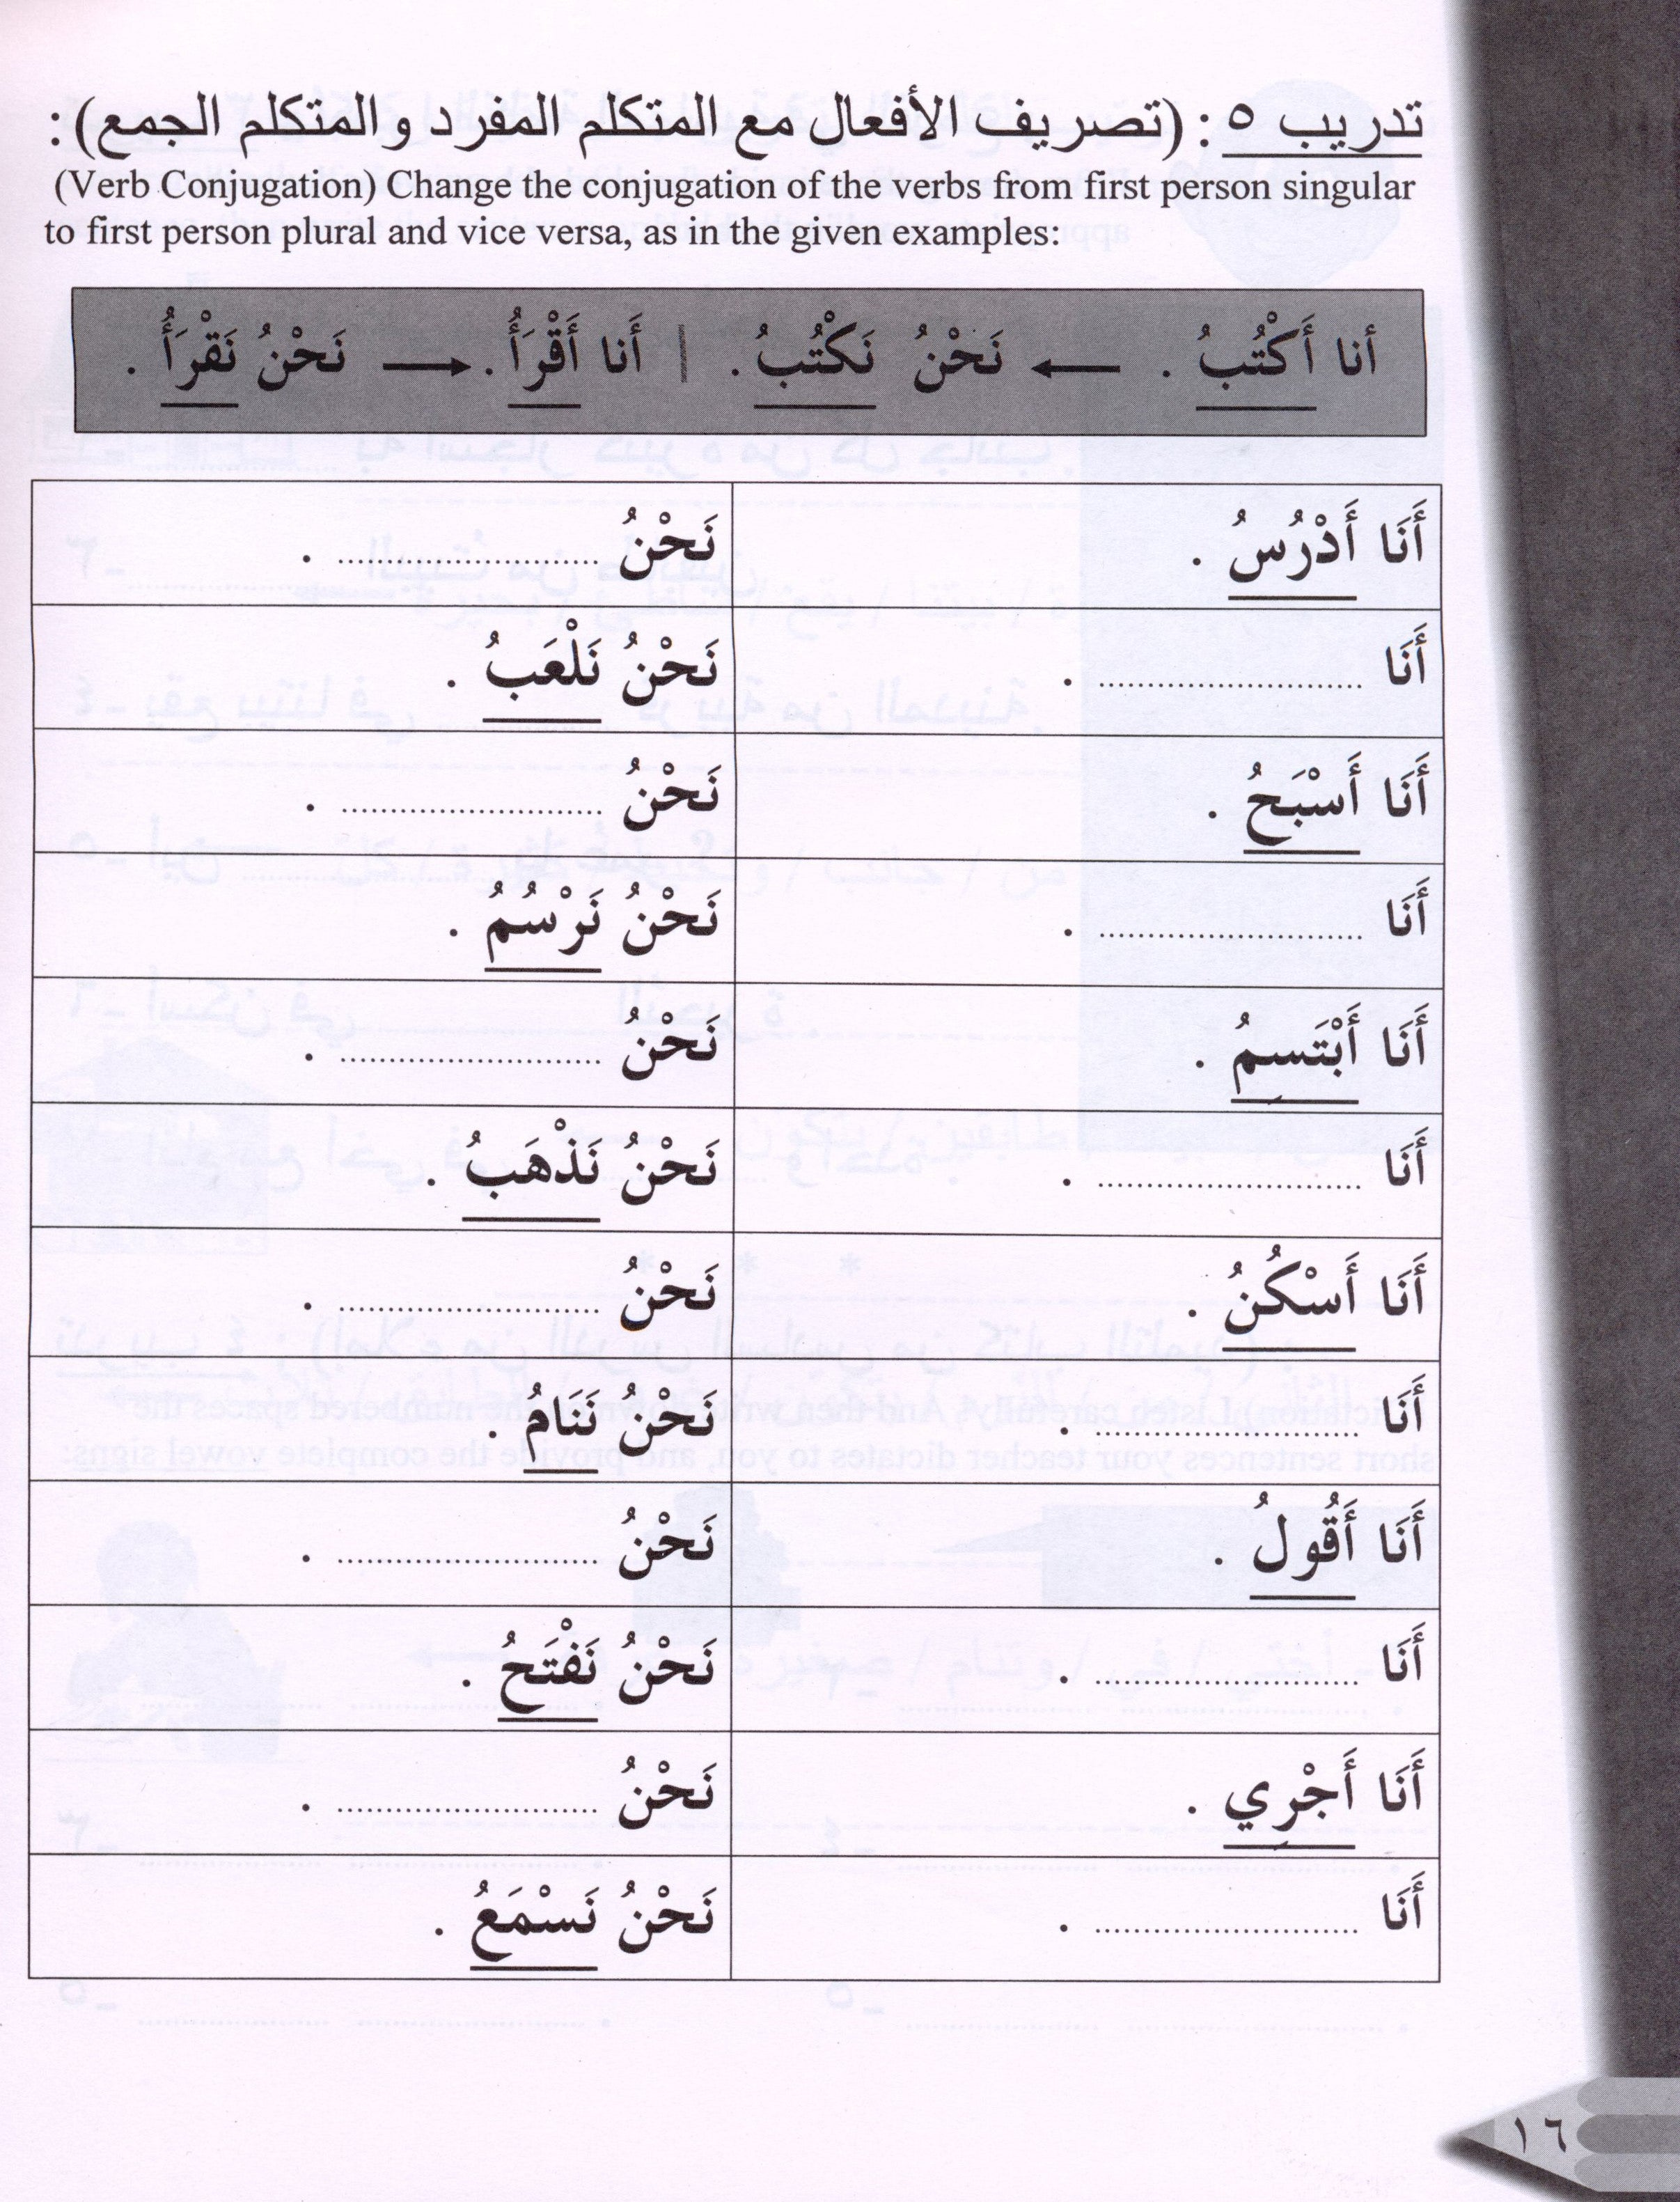 تدريب ٥ : (تصريف الأفعال مع المتكلم المفرد والمتكلم الجمع):
(Verb Conjugation) Change the conjugation of the verbs from first person singular
to first person plural and vice versa, as in the given examples:
أنا أَكْتُبُ . ← نَحْنُ نَكْتُبُ . | أَنا أَقْرَأُ . → نَحْنُ نَقْرَأُ .
أَنَا أَدْرُسُ . نَحْنُ .......................... .
أَنَا .......................... . نَحْنُ نَلْعَبُ .
أَنَا أَسْبَحُ . نَحْنُ .......................... .
أَنَا .......................... . نَحْنُ نَرْسُمُ .
أَنَا أَبْتَسِمُ . نَحْنُ .......................... .
أَنَا .......................... . نَحْنُ نَذْهَبُ .
أَنَا أَسْكُنُ . نَحْنُ .......................... .
أَنَا .......................... . نَحْنُ نَنَامُ .
أَنَا أَقُولُ . نَحْنُ .......................... .
أَنَا .......................... . نَحْنُ نَفْتَحُ .
أَنَا أَجْرِي . نَحْنُ .......................... .
أَنَا .......................... . نَحْنُ نَسْمَعُ .
١٦